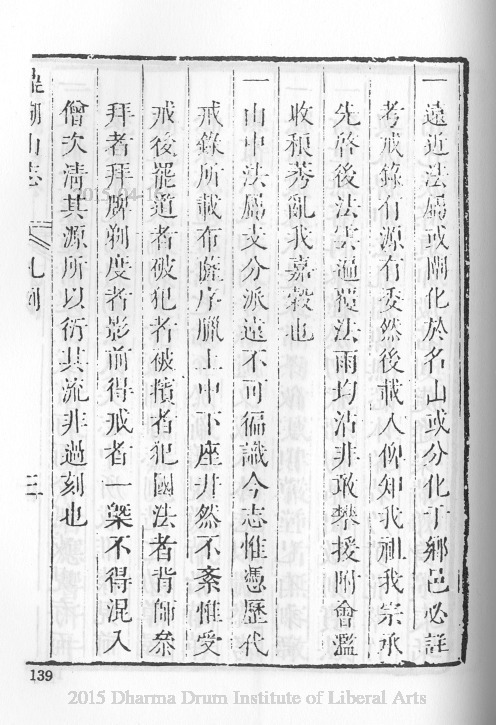 一遠近法屬或闡化於名山或分化于鄉邑必詳
考戒錄有源有委然後載入俾知我祖我宗承
先啓後法雲遍覆法雨均沾非敢攀援附會濫
收稂莠亂我嘉穀也
一山中法屬支分派遠不可徧識今志惟憑歷代
戒錄所載布薩序臘上中下座井然不紊惟受
戒後罷道者破犯者被擯者犯國法者背師叅
拜者拜牌剃度者影前得戒者一槩不得混入
僧次清其源所以衍其流非過刻也
鼎湖山志 凡例 三
139
2015-04-1
2015 Dharma Drum Institute of Liberal Arts